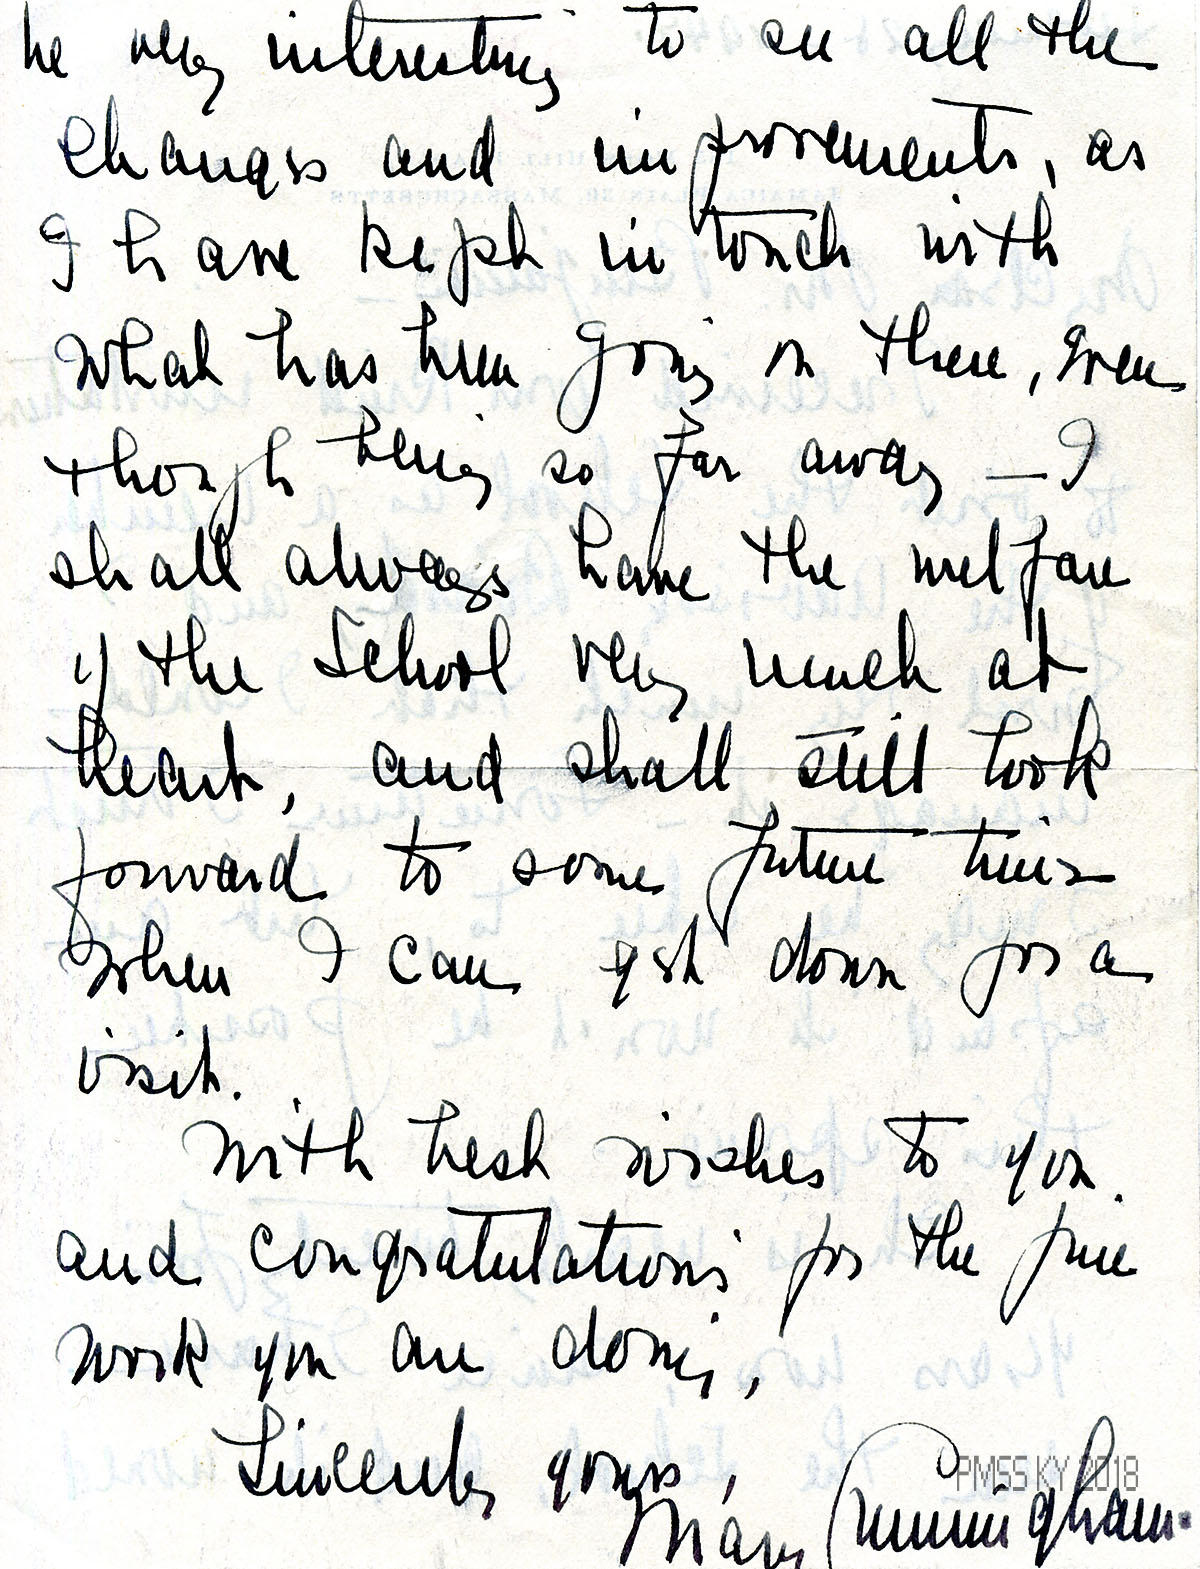 be very interesting to see all the
changes and improvements, as
I have kept in touch with
what has been going on there, even
though being so far away — I
shall always have the welfare
of the School very much at
heart, and shall still look
forward to some future time
when I can get down for a
visit.
With best wishes to you
and congratulations for the fine
work you are doing,
Sincerely yours,
Mary Cunningham.
PMSS KY 2018